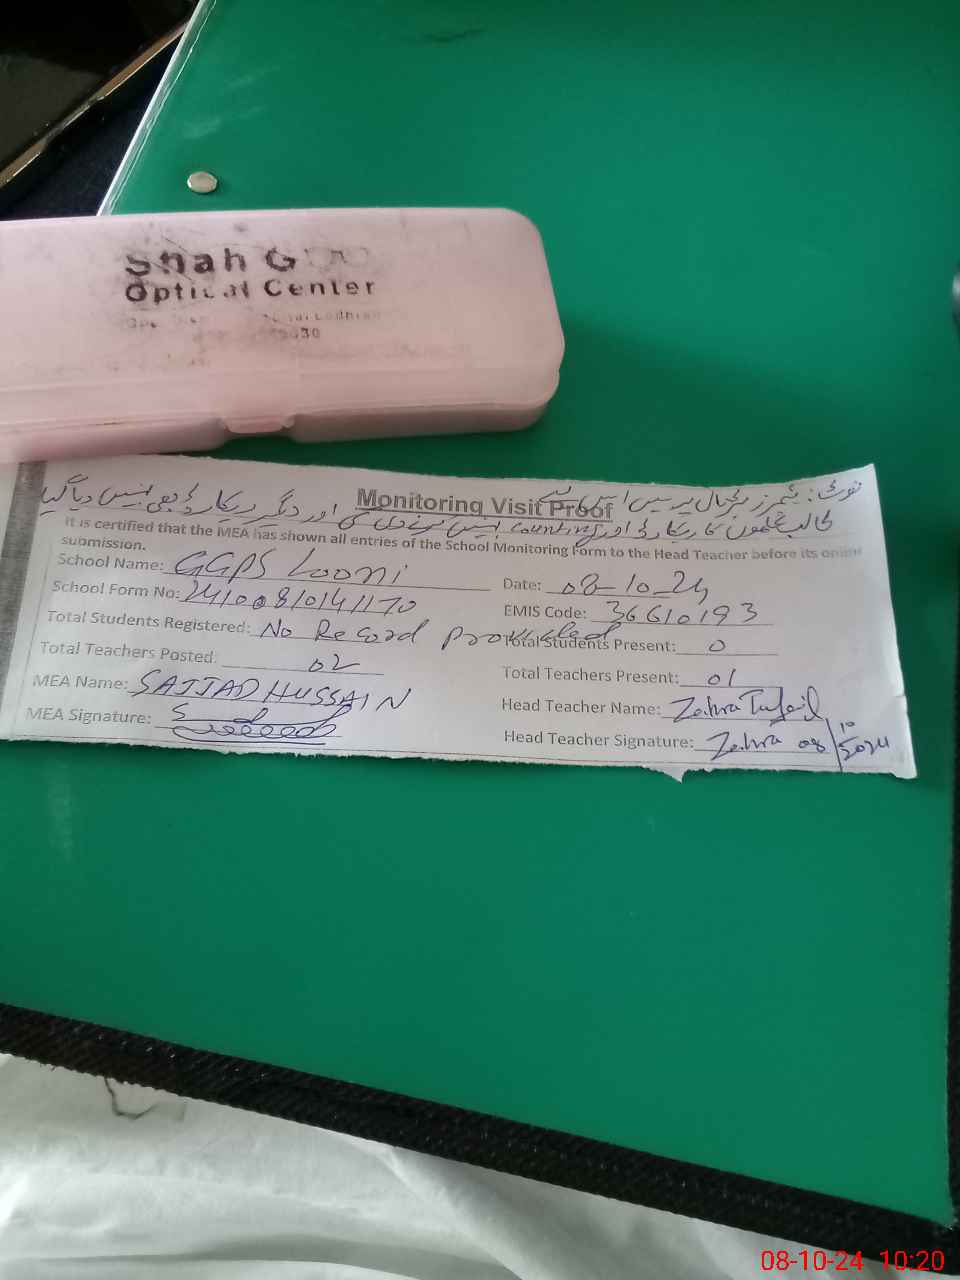 Shah G
Optical Center
نوٹ: ٹیچرز ہڑتال پر ہیں اس لیے
Monitoring Visit Proof
طالب علموں کا ریکارڈ اور counting نہیں کرنے دی گئی اور دیگر ریکارڈ بھی نہیں دیا گیا
It is certified that the MEA has shown all entries of the School Monitoring Form to the Head Teacher before its online
submission.
School Name: GGPS Looni
Date: 08-10-24
School Form No: 24100810141170
EMIS Code: 36610193
Total Students Registered: No Record provided
Total Students Present: 0
Total Teachers Posted: 02
Total Teachers Present: 01
MEA Name: SAJJAD HUSSAIN
Head Teacher Name: Zahra Tufail
MEA Signature:
Head Teacher Signature: Zahra 08/10/2024
08-10-24 10:20